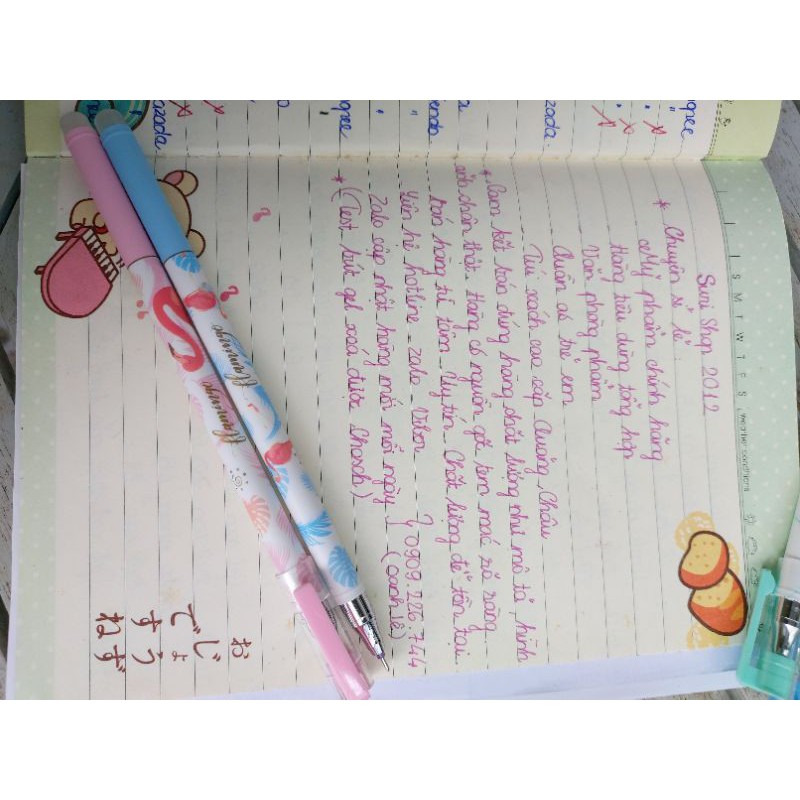 Suri Shop 2012
* Chuyên sỉ lẻ:
Mỹ phẩm chính hãng
Hàng tiêu dùng tổng hợp
Văn phòng phẩm
Quần áo trẻ em
Túi xách cao cấp Quảng Châu
* Cam kết bán đúng hàng chất lượng như mô tả, hình
ảnh chân thật. Hàng có nguồn gốc tem mác rõ ràng
Bán hàng từ tâm - Uy tín Chất lượng để tồn tại
Liên hệ hotline - Zalo - Viber } 0909.286.744
Zalo cập nhật hàng mới mỗi ngày (Oanh Lê)
* (Test bút gel xoá được Chosch)
お
じょう
です
ねず
S M T W T F S
weather conditions
Flamingo
Flamingo